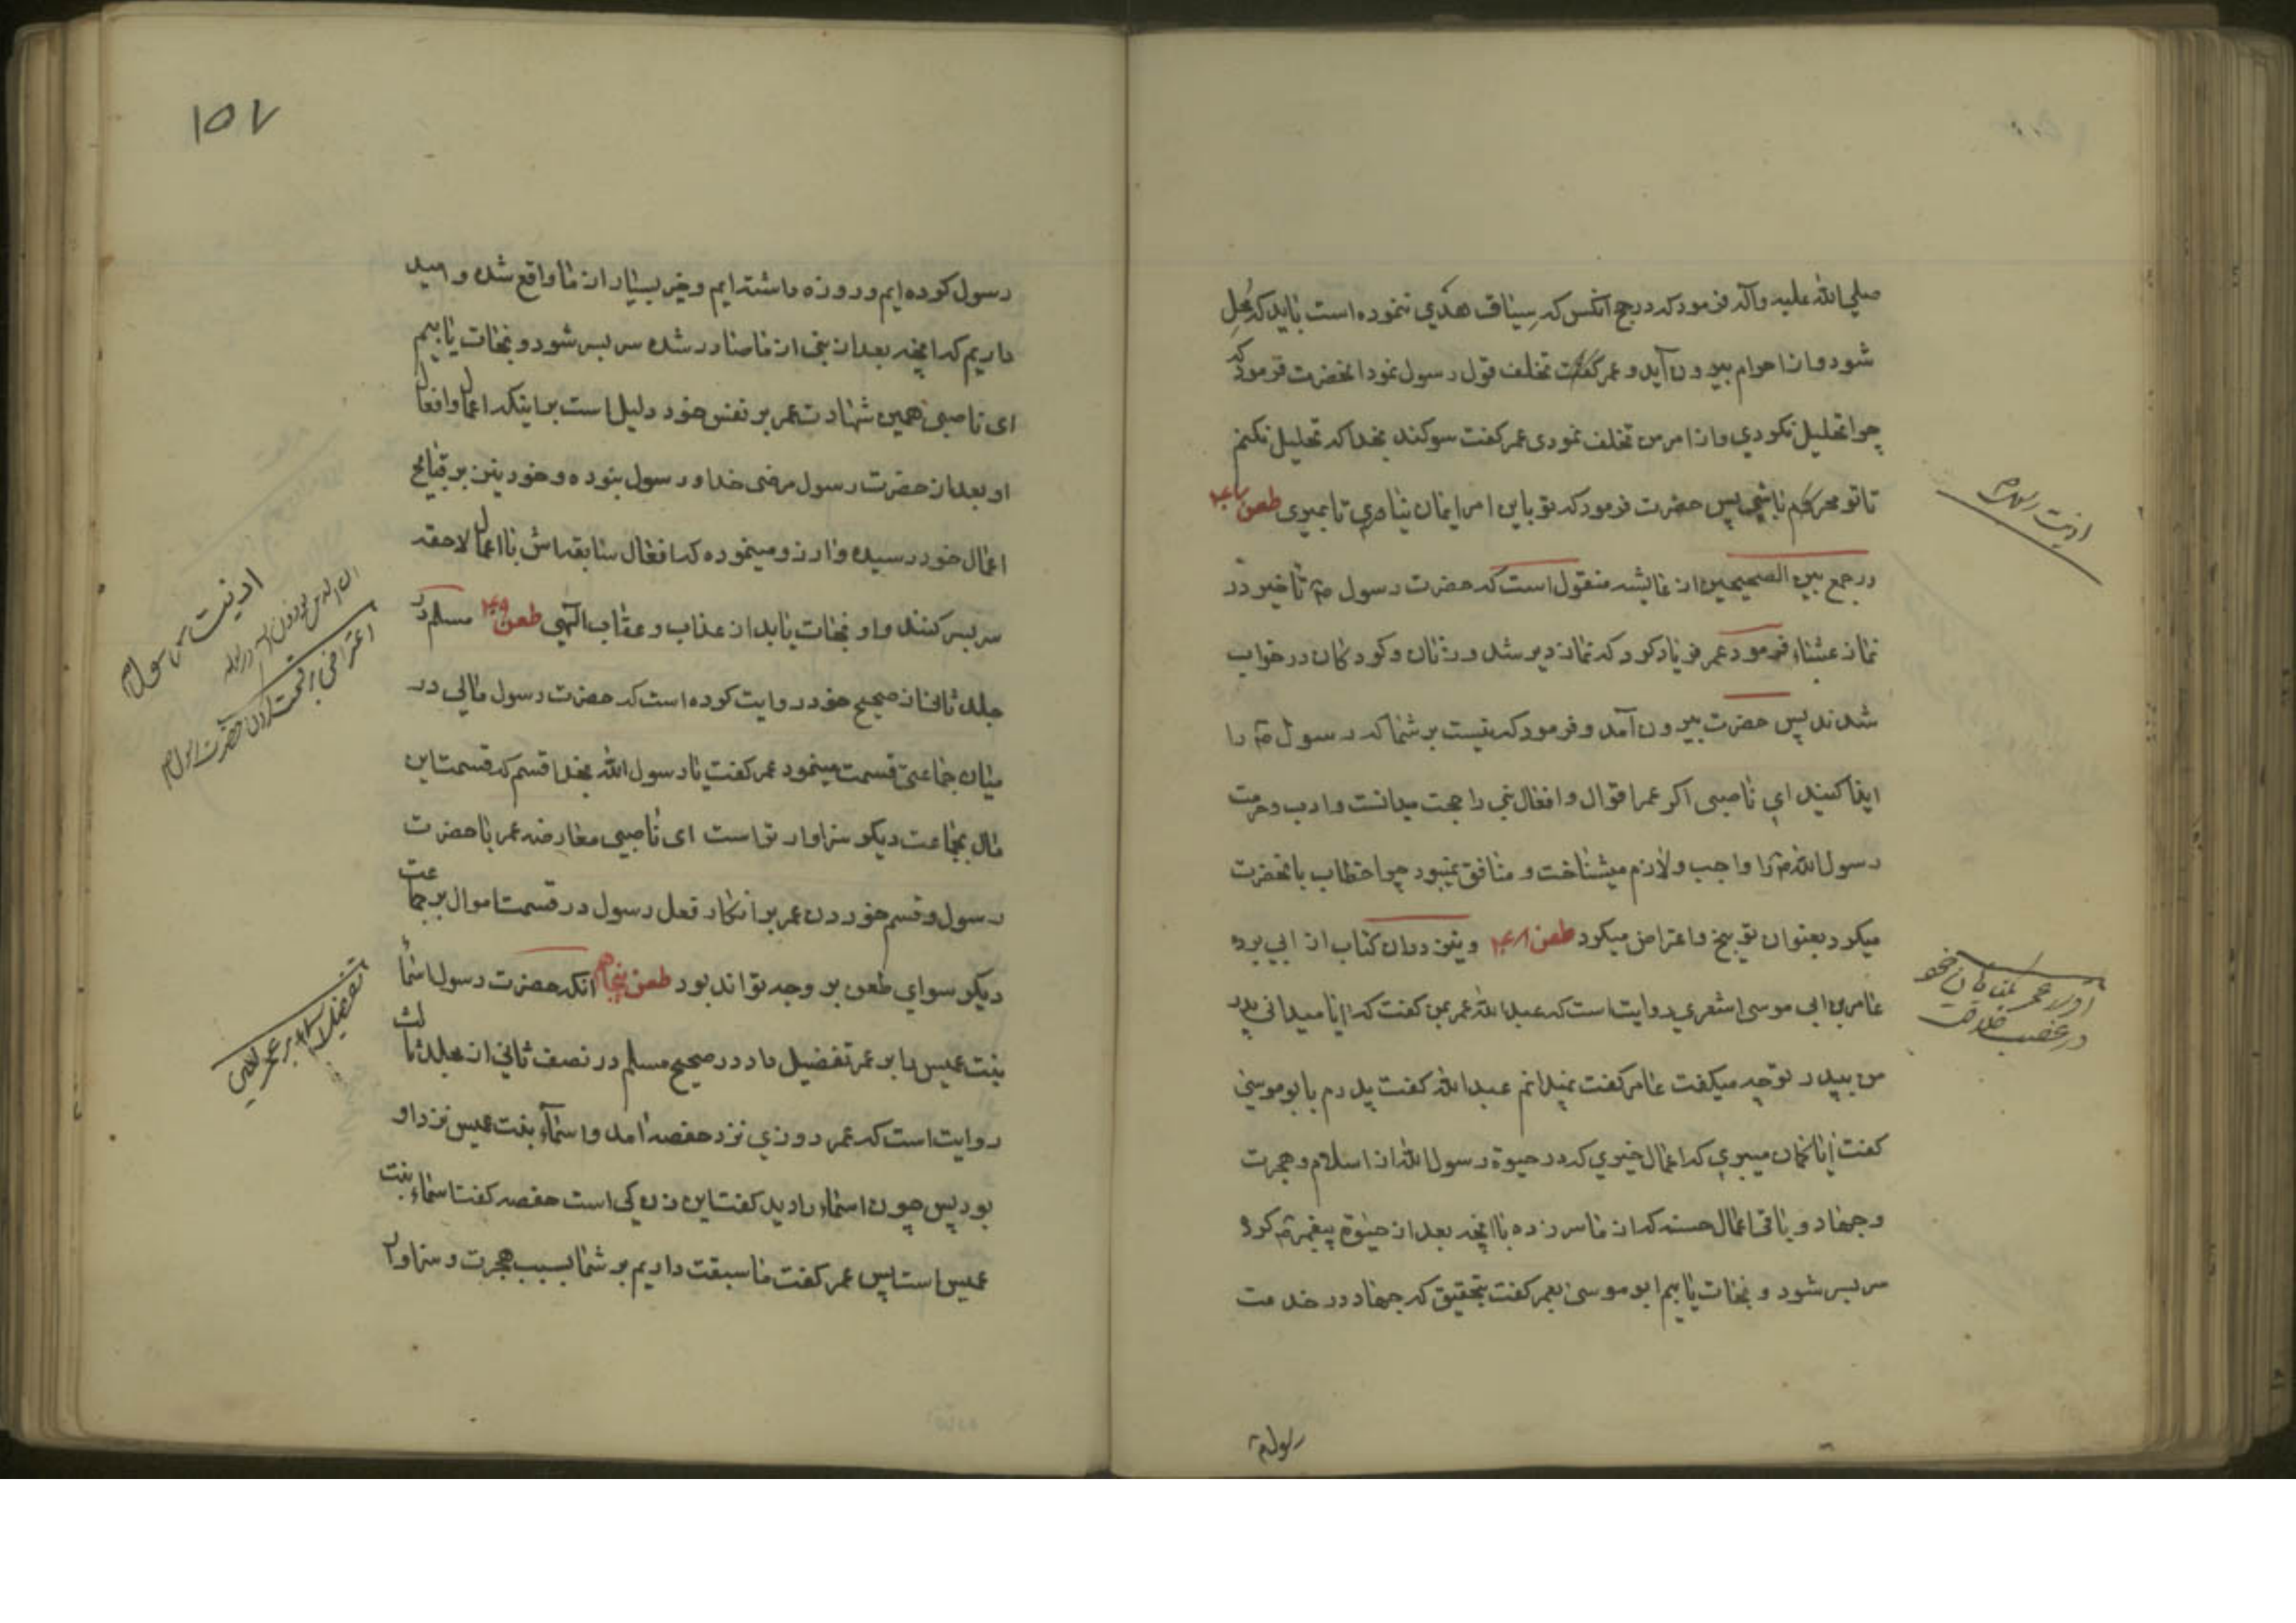 صلی الله علیه وآله فرمود که در حج آنکس که سیاق هدی ننموده است باید که مُحِلّ
شود و از احرام بیرون آید و عمر گفت تخلف قول رسول نمود انحضرت فرمود که
چرا تحلیل نکردی و از امر من تخلف نمودی عمر کفت سوکند بخدا که تحلیل نکنم
تا تو محرم باشی پس حضرت فرمود که تو باین امر ایمان نیاوری تا بمیری طعن ۴۷
در جمع بین الصحیحین از عایشه منقول است که حضرت رسول ص تاخیر در
نماز عشاء فرمود عمر فریاد کرد که نماز دیر شد و زنان و کودکان در خواب
شدند پس حضرت بیرون آمد و فرمود که نیست بر شما که رسول ص را
ایذا کنید ای ناصبی اکر عمر اقوال و افعال نبی را حجت میدانست و ادب و حرمت
رسول الله ص را واجب و لازم میشناخت و منافق نمیبود چرا خطاب بانحضرت
میکرد بعنوان توبیخ و اعتراض میکرد طعن ۴۸ و نیز در ان کتاب از ابی برده
عامر بن ابی موسی اشعری روایت است که عبدالله عمر بمن کفت که ایا میدانی پدر
من بپدر تو چه میکفت عامر کفت نمیدانم عبدالله کفت پدرم بابو موسی
کفت ایا کمان میبری که اعمال خیری که در حیوة رسول الله از اسلام و هجرت
و جهاد و باقی اعمال حسنه که از ما سر زده با انچه بعد از حیوة پیغمبر ص کرد
سر بسر شود و نجات یابیم ابو موسی بعمر کفت بتحقیق که جهاد در خدمت
رسول ص
اذیت رسول ص
در غصب خلافت
۱۵۷
رسول کرده ایم و روزه داشته ایم و خیر بسیار از ما واقع شده و امید
داریم که انچه بعد از نبی از ما صادر شده سر بسر شود و نجات یابیم
ای ناصبی همین شهادت عمر بر نفس خود دلیل است بر اینکه اعمال و افعال
او بعد از حضرت رسول مرضی خدا و رسول نبوده و خود نیز بر قبایح
اعمال خود رسیده و ارزو مینموده که افعال سابقه اش با اعمال لاحقه
سر بسر کنند و او نجات یابد از عذاب و عقاب الهی طعن ۴۹ مسلم در
جلد ثالث از صحیح خود روایت کرده است که حضرت رسول مالی در
میان جماعتی قسمت مینمود عمر کفت یا رسول الله بخدا قسم که قسمت این
مال بجماعت دیکر سزاوار تر است ای ناصبی معارضه عمر با حضرت
رسول و قسم خوردن عمر بر انکار فعل رسول در قسمت اموال بر جماعت
دیکر سوای طعن بر وجه تواند بود طعن پنجاهم انکه حضرت رسول اسماء
بنت عمیس را بر عمر تفضیل داد در صحیح مسلم در نصف ثانی از مجلد ثالث
روایت است که عمر روزی نزد حفصه امد و اسمآء بنت عمیس نزد او
بود پس چون اسماء را دید کفت این زن کی است حفصه کفت اسماء بنت
عمیس است پس عمر کفت ما سبقت داریم بر شما بسبب هجرت و سزاوار
اذیت رسول ص
اعتراض بر قسمت کردن حضرت رسول ص